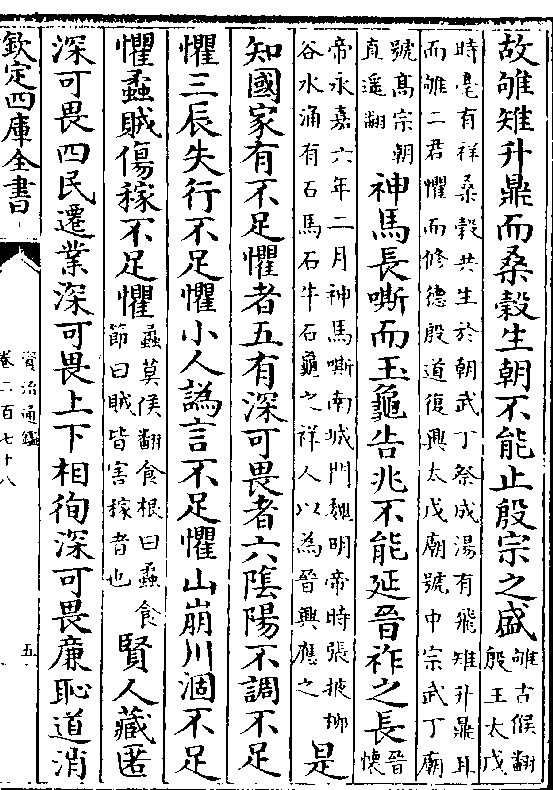 故雊雉升鼎而桑榖生朝不能止殷宗之盛
雊古候翻
殷王太戊
時亳有祥桑榖共生於朝武丁祭成湯有飛雉升鼎耳
而雊二君懼而修德殷道復興太戊廟號中宗武丁廟
號髙宗朝
直遥翻
神馬長嘶而玉龜告兆不能延晉祚之長
晉
懷
帝永嘉六年二月神馬嘶南城門魏明帝時張掖栁
谷水涌有石馬石牛石龜之祥人以為晉興應之
是
知國家有不足懼者五有深可畏者六隂陽不調不足
懼三辰失行不足懼小人譌言不足懼山崩川涸不足
懼蟊賊傷稼不足懼
蟊莫侯翻食根曰蟊食
節曰賊皆害稼者也
賢人藏匿
深可畏四民遷業深可畏上下相徇深可畏廉恥道消
欽定四庫全書
資治通鑑
卷二百七十八
五